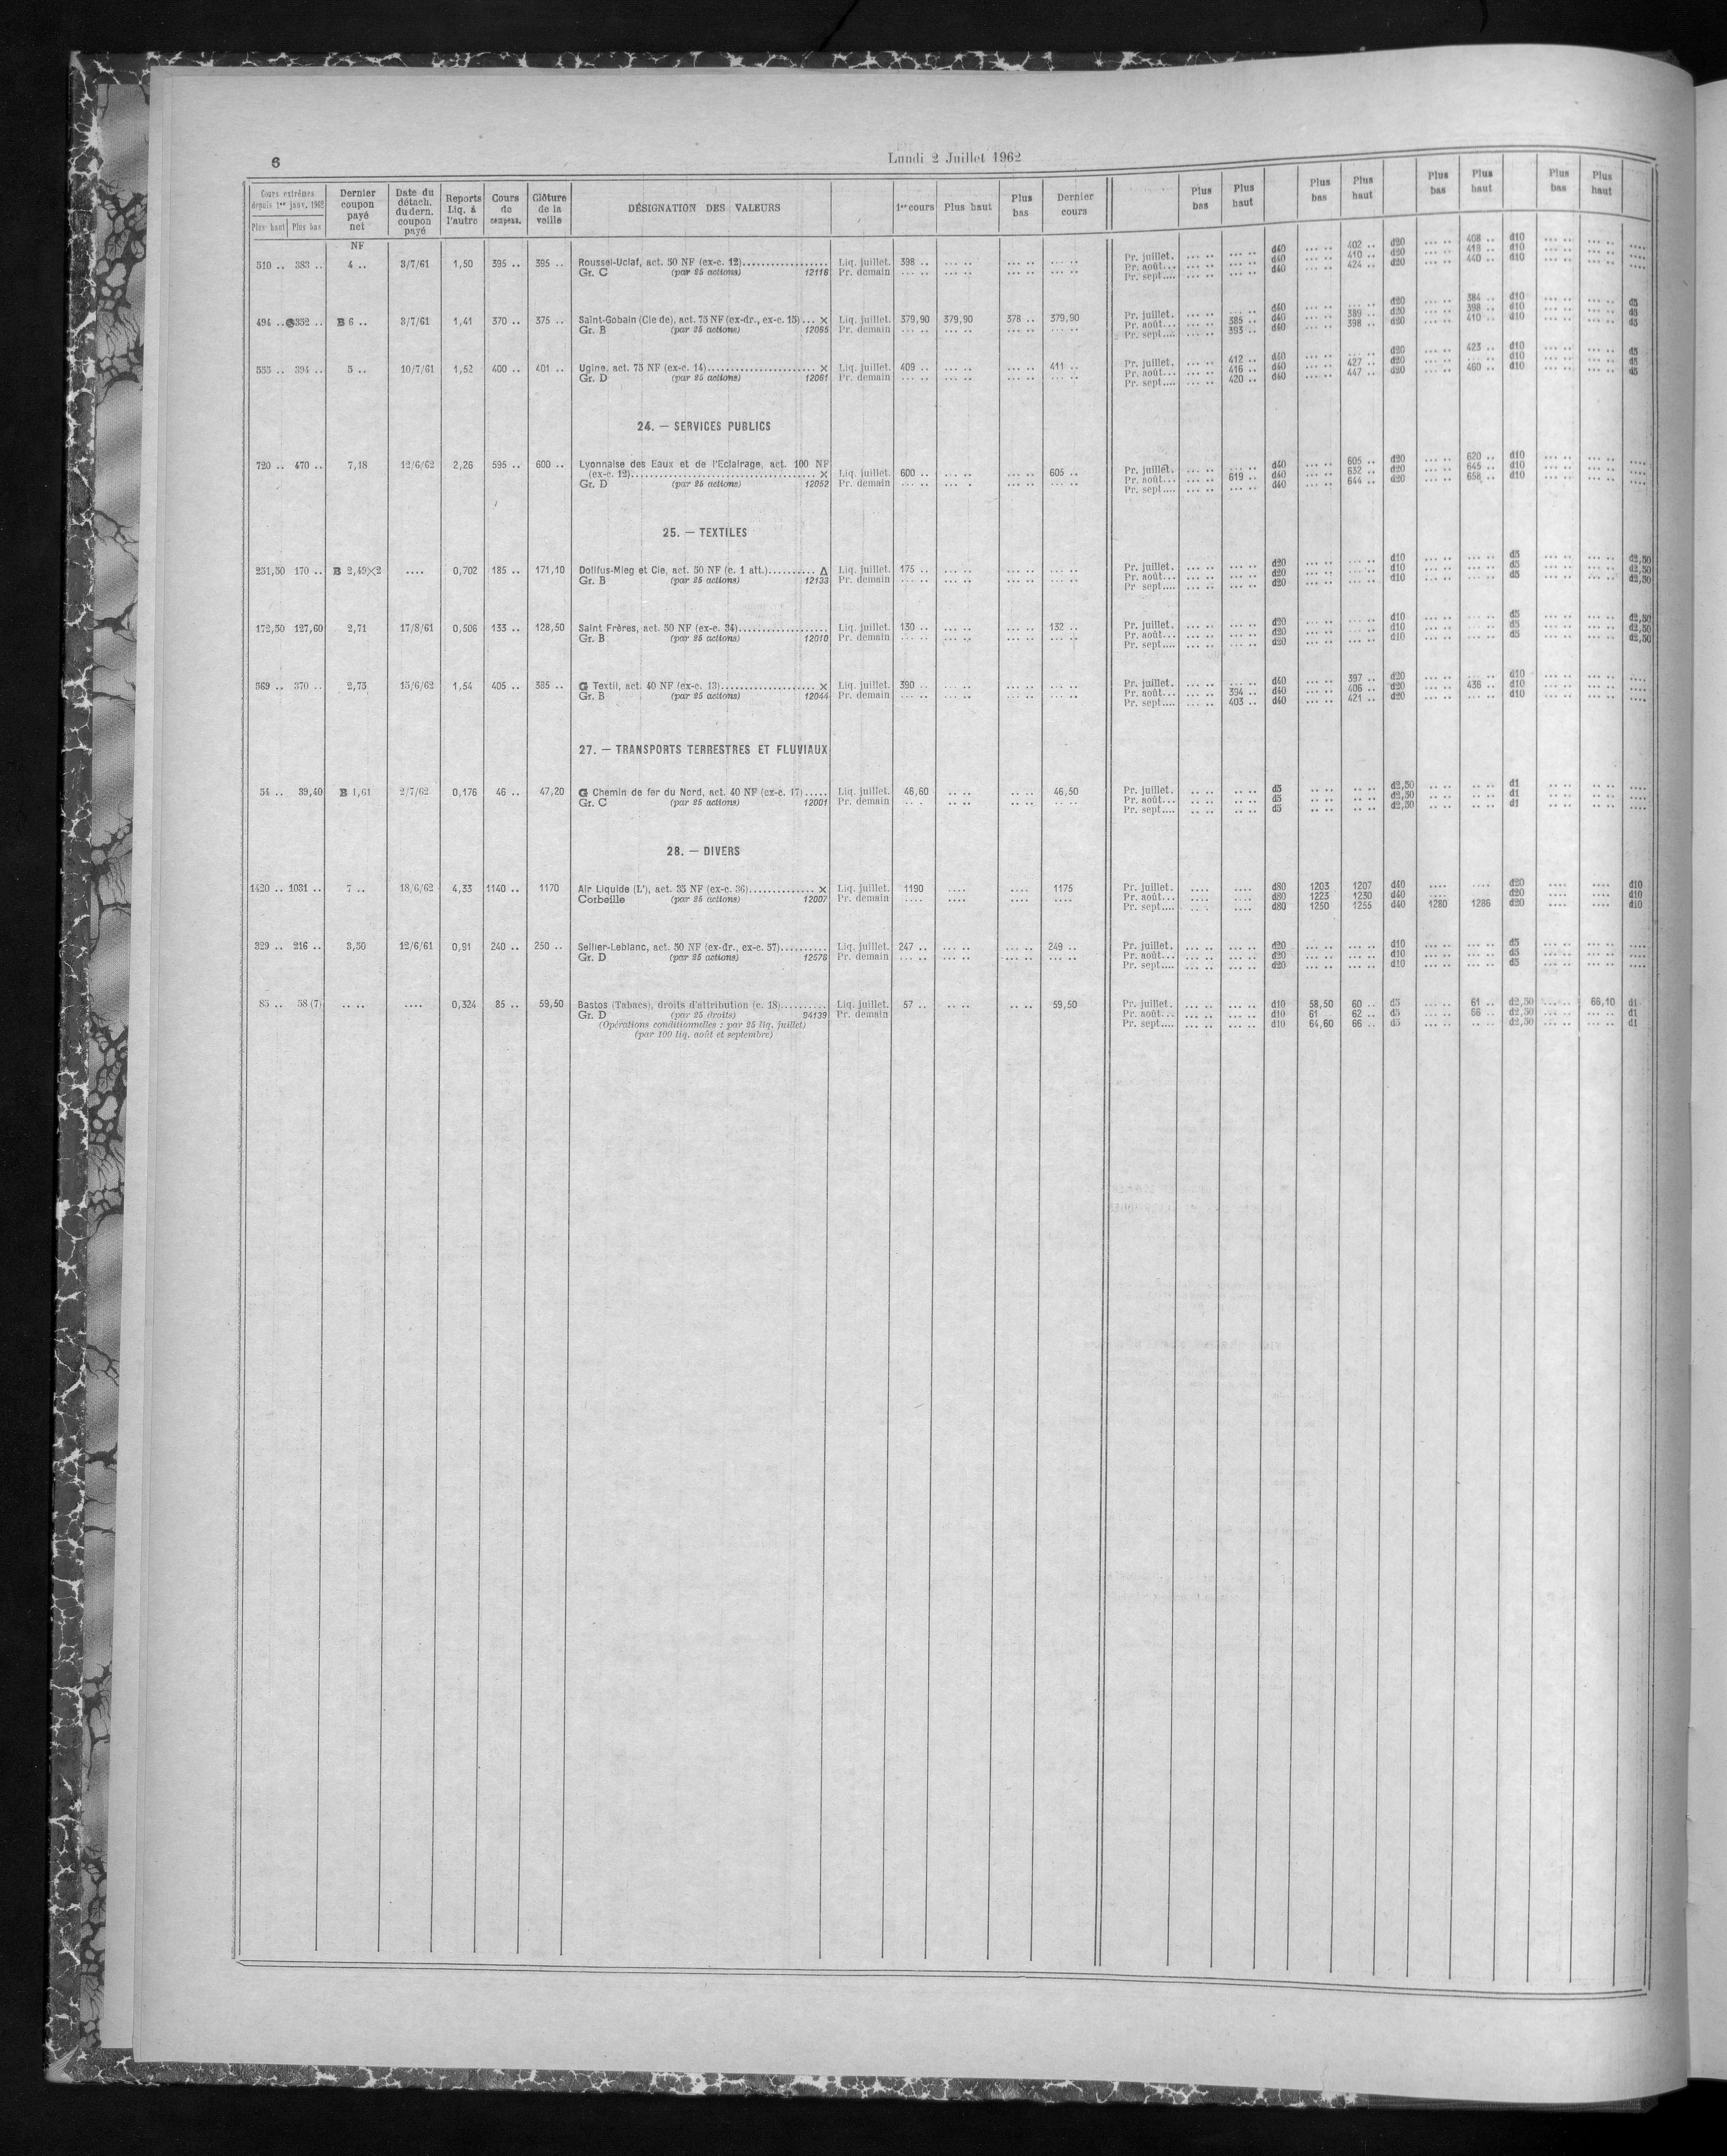 6
Lundi 2 Juillet 1962
Cours extrêmes depuis 1er janv. 1962 Plus haut Plus bas | Dernier coupon payé net | Date du détach. du dern. coupon payé | Reports Liq. à l'autre | Cours de compens. | Clôture de la veille | DÉSIGNATION DES VALEURS | 1er cours | Plus haut | Plus bas | Dernier cours | Plus bas | Plus haut | Plus bas | Plus haut | Plus bas | Plus haut | Plus bas | Plus haut
NF
510 .. 383 .. 4 .. 3/7/61 1,50 395 .. 395 .. Roussel-Uclaf, act. 50 NF (ex-c. 12)........ Liq. juillet. 398 .. Pr. juillet. d40 402 .. d20 408 .. d10
Gr. C (par 25 actions) 12116 Pr. demain Pr. août... d40 410 .. d20 418 .. d10
Pr. sept.... d40 424 .. d20 440 .. d10
494 .. 352 .. B 6 .. 3/7/61 1,41 370 .. 375 .. Saint-Gobain (Cie de), act. 75 NF (ex-dr., ex-c. 15)... × Liq. juillet. 379,90 379,90 378 .. 379,90 Pr. juillet. d40 d20 384 .. d10 d5
Gr. B (par 25 actions) 12065 Pr. demain Pr. août... 385 .. d40 389 .. d20 398 .. d10 d5
Pr. sept.... 393 .. d40 398 .. d20 410 .. d10 d5
555 .. 394 .. 5 .. 10/7/61 1,52 400 .. 401 .. Ugine, act. 75 NF (ex-c. 14)........ × Liq. juillet. 409 .. 411 .. Pr. juillet. 412 .. d40 d20 423 .. d10 d5
Gr. D (par 25 actions) 12061 Pr. demain Pr. août... 416 .. d40 427 .. d20 d10 d5
Pr. sept.... 420 .. d40 447 .. d20 460 .. d10 d5
24. — SERVICES PUBLICS
720 .. 470 .. 7,18 12/6/62 2,26 595 .. 600 .. Lyonnaise des Eaux et de l'Eclairage, act. 100 NF
(ex-c. 12)........ × Liq. juillet. 600 .. 605 .. Pr. juillet. d40 605 .. d20 620 .. d10
Gr. D (par 25 actions) 12052 Pr. demain Pr. août... 619 .. d40 632 .. d20 645 .. d10
Pr. sept.... d40 644 .. d20 658 .. d10
25. — TEXTILES
251,50 170 .. B 2,49×2 .... 0,702 185 .. 171,10 Dollfus-Mieg et Cie, act. 50 NF (c. 1 att.)........ Δ Liq. juillet. 175 .. Pr. juillet. d20 d10 d5 d2,50
Gr. B (par 25 actions) 12133 Pr. demain Pr. août... d20 d10 d5 d2,50
Pr. sept.... d20 d10 d5 d2,50
172,50 127,60 2,71 17/8/61 0,506 133 .. 128,50 Saint Frères, act. 50 NF (ex-c. 34)........ Liq. juillet. 130 .. 132 .. Pr. juillet. d20 d10 d5 d2,50
Gr. B (par 25 actions) 12010 Pr. demain Pr. août... d20 d10 d5 d2,50
Pr. sept.... d20 d10 d5 d2,50
569 .. 370 .. 2,75 15/6/62 1,54 405 .. 385 .. G Textil, act. 40 NF (ex-c. 13)........ × Liq. juillet. 390 .. Pr. juillet. d40 397 .. d20 d10
Gr. B (par 25 actions) 12044 Pr. demain Pr. août... 394 .. d40 406 .. d20 436 .. d10
Pr. sept.... 403 .. d40 421 .. d20 d10
27. — TRANSPORTS TERRESTRES ET FLUVIAUX
54 .. 39,40 B 1,61 2/7/62 0,176 46 .. 47,20 G Chemin de fer du Nord, act. 40 NF (ex-c. 17)..... Liq. juillet. 46,60 46,50 Pr. juillet. d5 d2,50 d1
Gr. C (par 25 actions) 12001 Pr. demain Pr. août... d5 d2,50 d1
Pr. sept.... d5 d2,50 d1
28. — DIVERS
1420 .. 1031 .. 7 .. 18/6/62 4,33 1140 .. 1170 Air Liquide (L'), act. 35 NF (ex-c. 36)........ × Liq. juillet. 1190 .... .... 1175 Pr. juillet. d80 1203 1207 d40 .... .... d20 .... .... d10
Corbeille (par 25 actions) 12007 Pr. demain Pr. août... d80 1223 1230 d40 .... d20 .... .... d10
Pr. sept.... d80 1250 1255 d40 1280 1286 d20 .... .... d10
329 .. 216 .. 3,50 12/6/61 0,91 240 .. 250 .. Sellier-Leblanc, act. 50 NF (ex-dr., ex-c. 57)........ Liq. juillet. 247 .. 249 .. Pr. juillet. d20 d10 d5
Gr. D (par 25 actions) 12576 Pr. demain Pr. août... d20 d10 d5
Pr. sept.... d20 d10 d5
85 .. 58 (7) .... .... 0,324 85 .. 59,50 Bastos (Tabacs), droits d'attribution (c. 18)........ Liq. juillet. 57 .. 59,50 Pr. juillet. d10 58,50 60 .. d5 61 .. d2,50 66,10 d1
Gr. D (par 25 droits) 94139 Pr. demain Pr. août... d10 61 62 .. d5 66 .. d2,50 d1
(Opérations conditionnelles : par 25 liq. juillet) Pr. sept.... d10 64,60 66 .. d5 d2,50 d1
(par 100 liq. août et septembre)